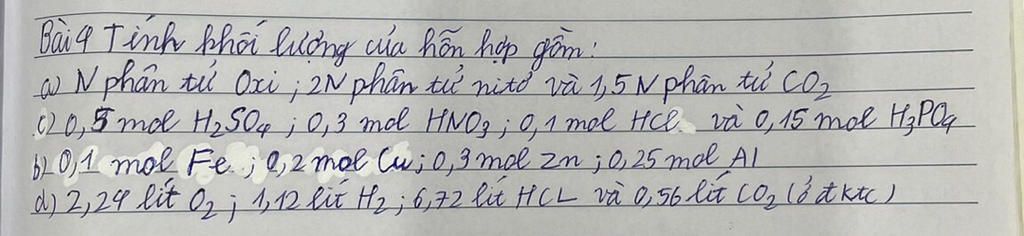 Bài 4 Tính khối lượng của hỗn hợp gồm:
a) N phân tử Oxi; 2N phân tử nitơ và 1,5 N phân tử CO2
c) 0,5 mol H2SO4; 0,3 mol HNO3; 0,1 mol HCl và 0,15 mol H3PO4
b) 0,1 mol Fe; 0,2 mol Cu; 0,3 mol Zn; 0,25 mol Al
d) 2,24 lít O2; 1,12 lít H2; 6,72 lít HCL và 0,56 lít CO2 (ở đktc)